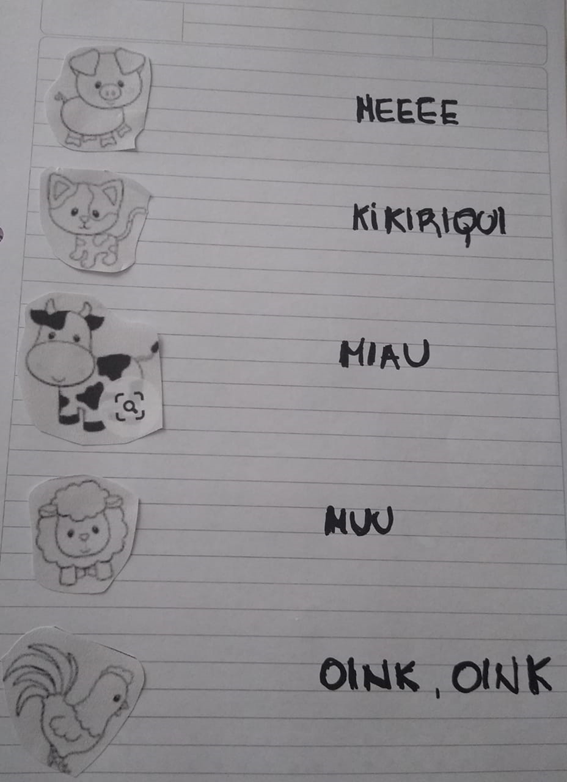 MEEEE
KiKIRIQUI
MIAU
MUU
OINK, OINK